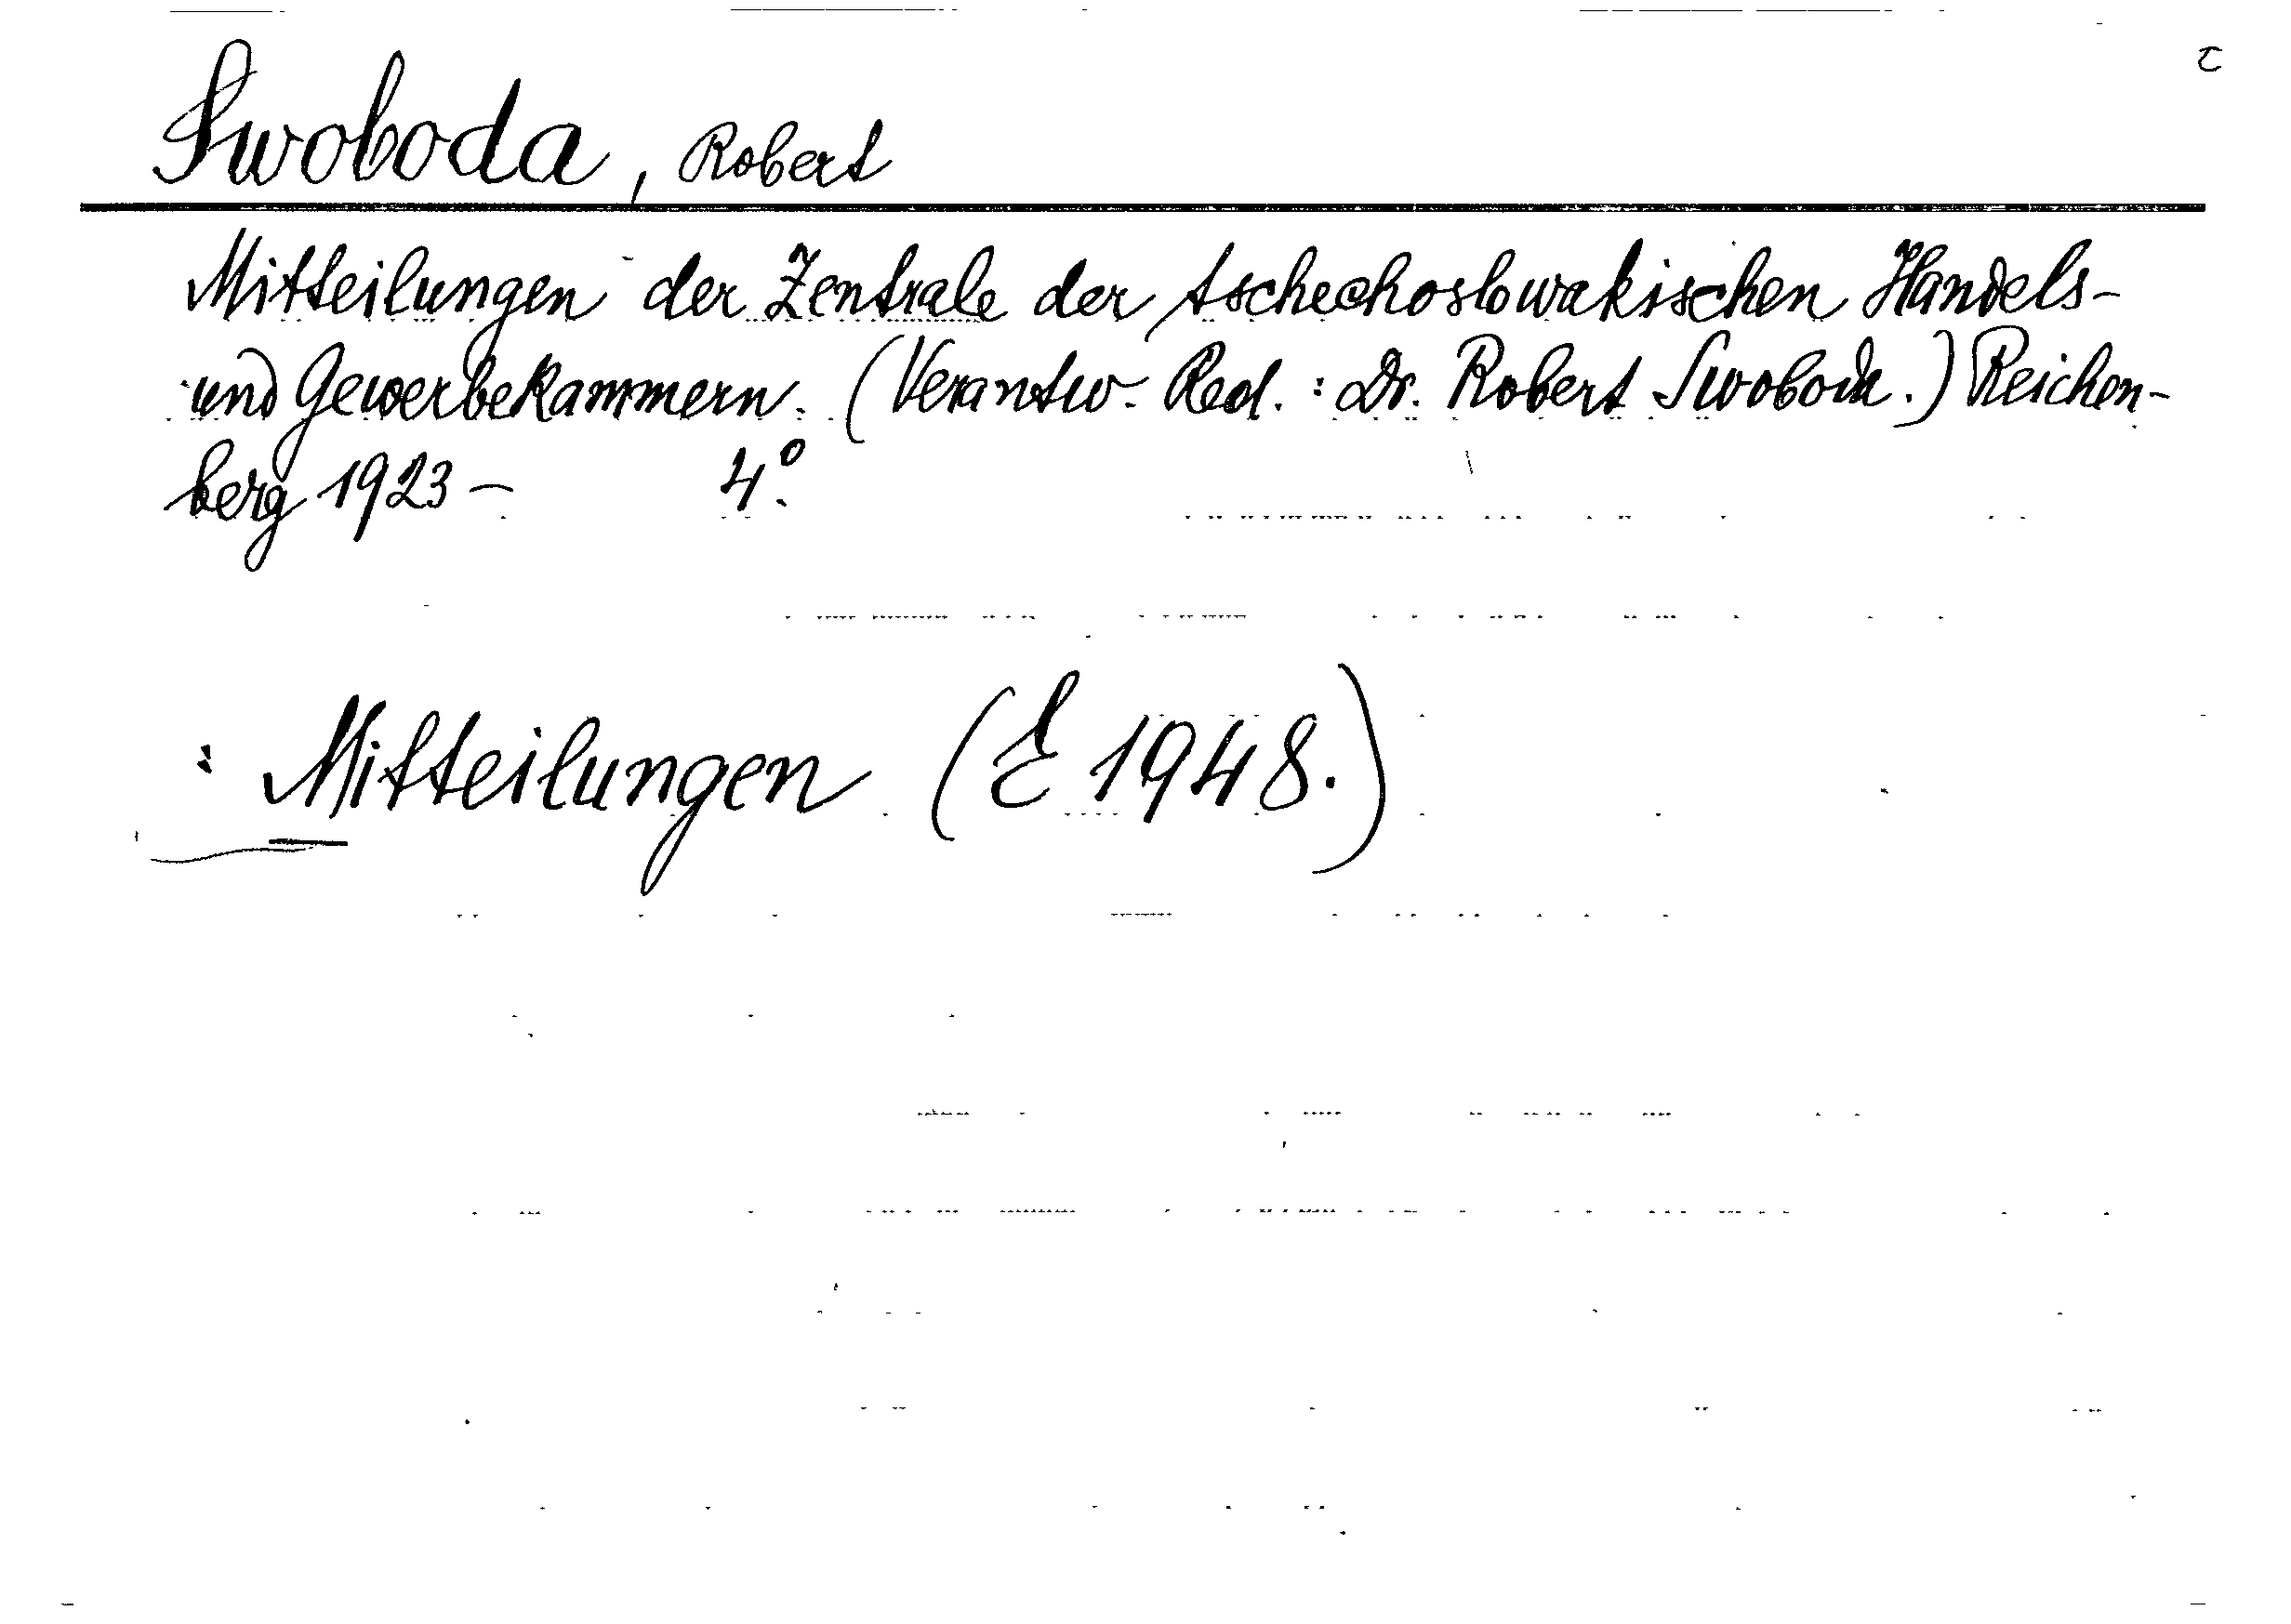 Swoboda, Robert
Mitteilungen der Zentrale der tschechoslowakischen Handels-
und Gewerbekammern. (Verantw. Red.: Dr. Robert Swoboda.) Reichen-
berg 1923 – 4°.
: Mitteilungen (E 1948.)